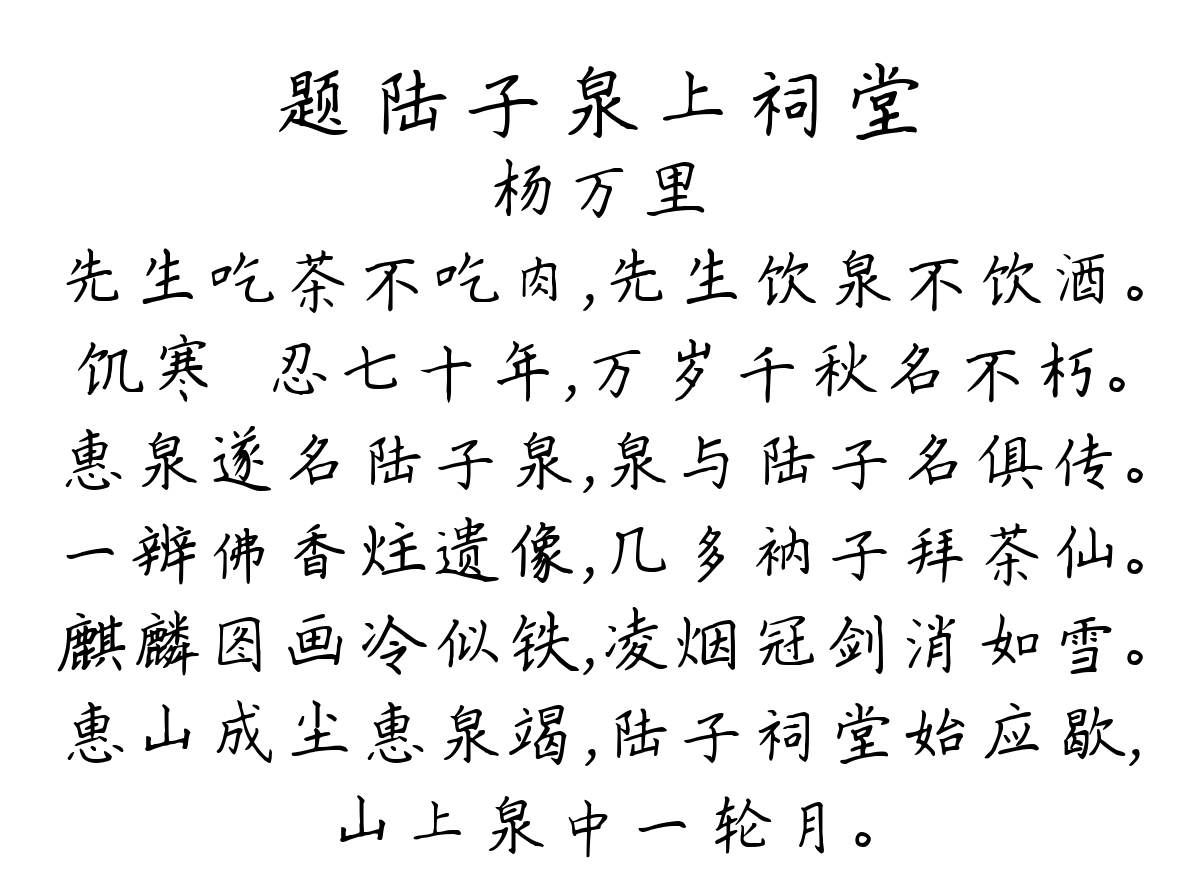 题陆子泉上祠堂
杨万里
先生吃茶不吃肉,先生饮泉不饮酒。
饥寒 忍七十年,万岁千秋名不朽。
惠泉遂名陆子泉,泉与陆子名俱传。
一辨佛香炷遗像,几多衲子拜茶仙。
麒麟图画冷似铁,凌烟冠剑消如雪。
惠山成尘惠泉竭,陆子祠堂始应歇,
山上泉中一轮月。